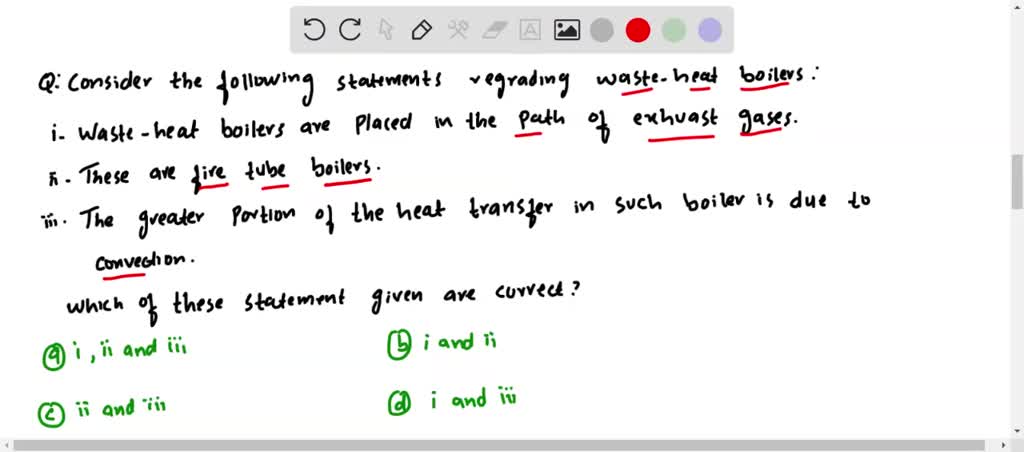 Q: Consider the following statements regrading waste-heat boilers:
i- Waste-heat boilers are placed in the path of exhuast gases.
ii- These are fire tube boilers.
iii. The greater portion of the heat transfer in such boiler is due to
convection.
Which of these statement given are correct?
(a) i, ii and iii (b) i and ii
(c) ii and iii (d) i and iii